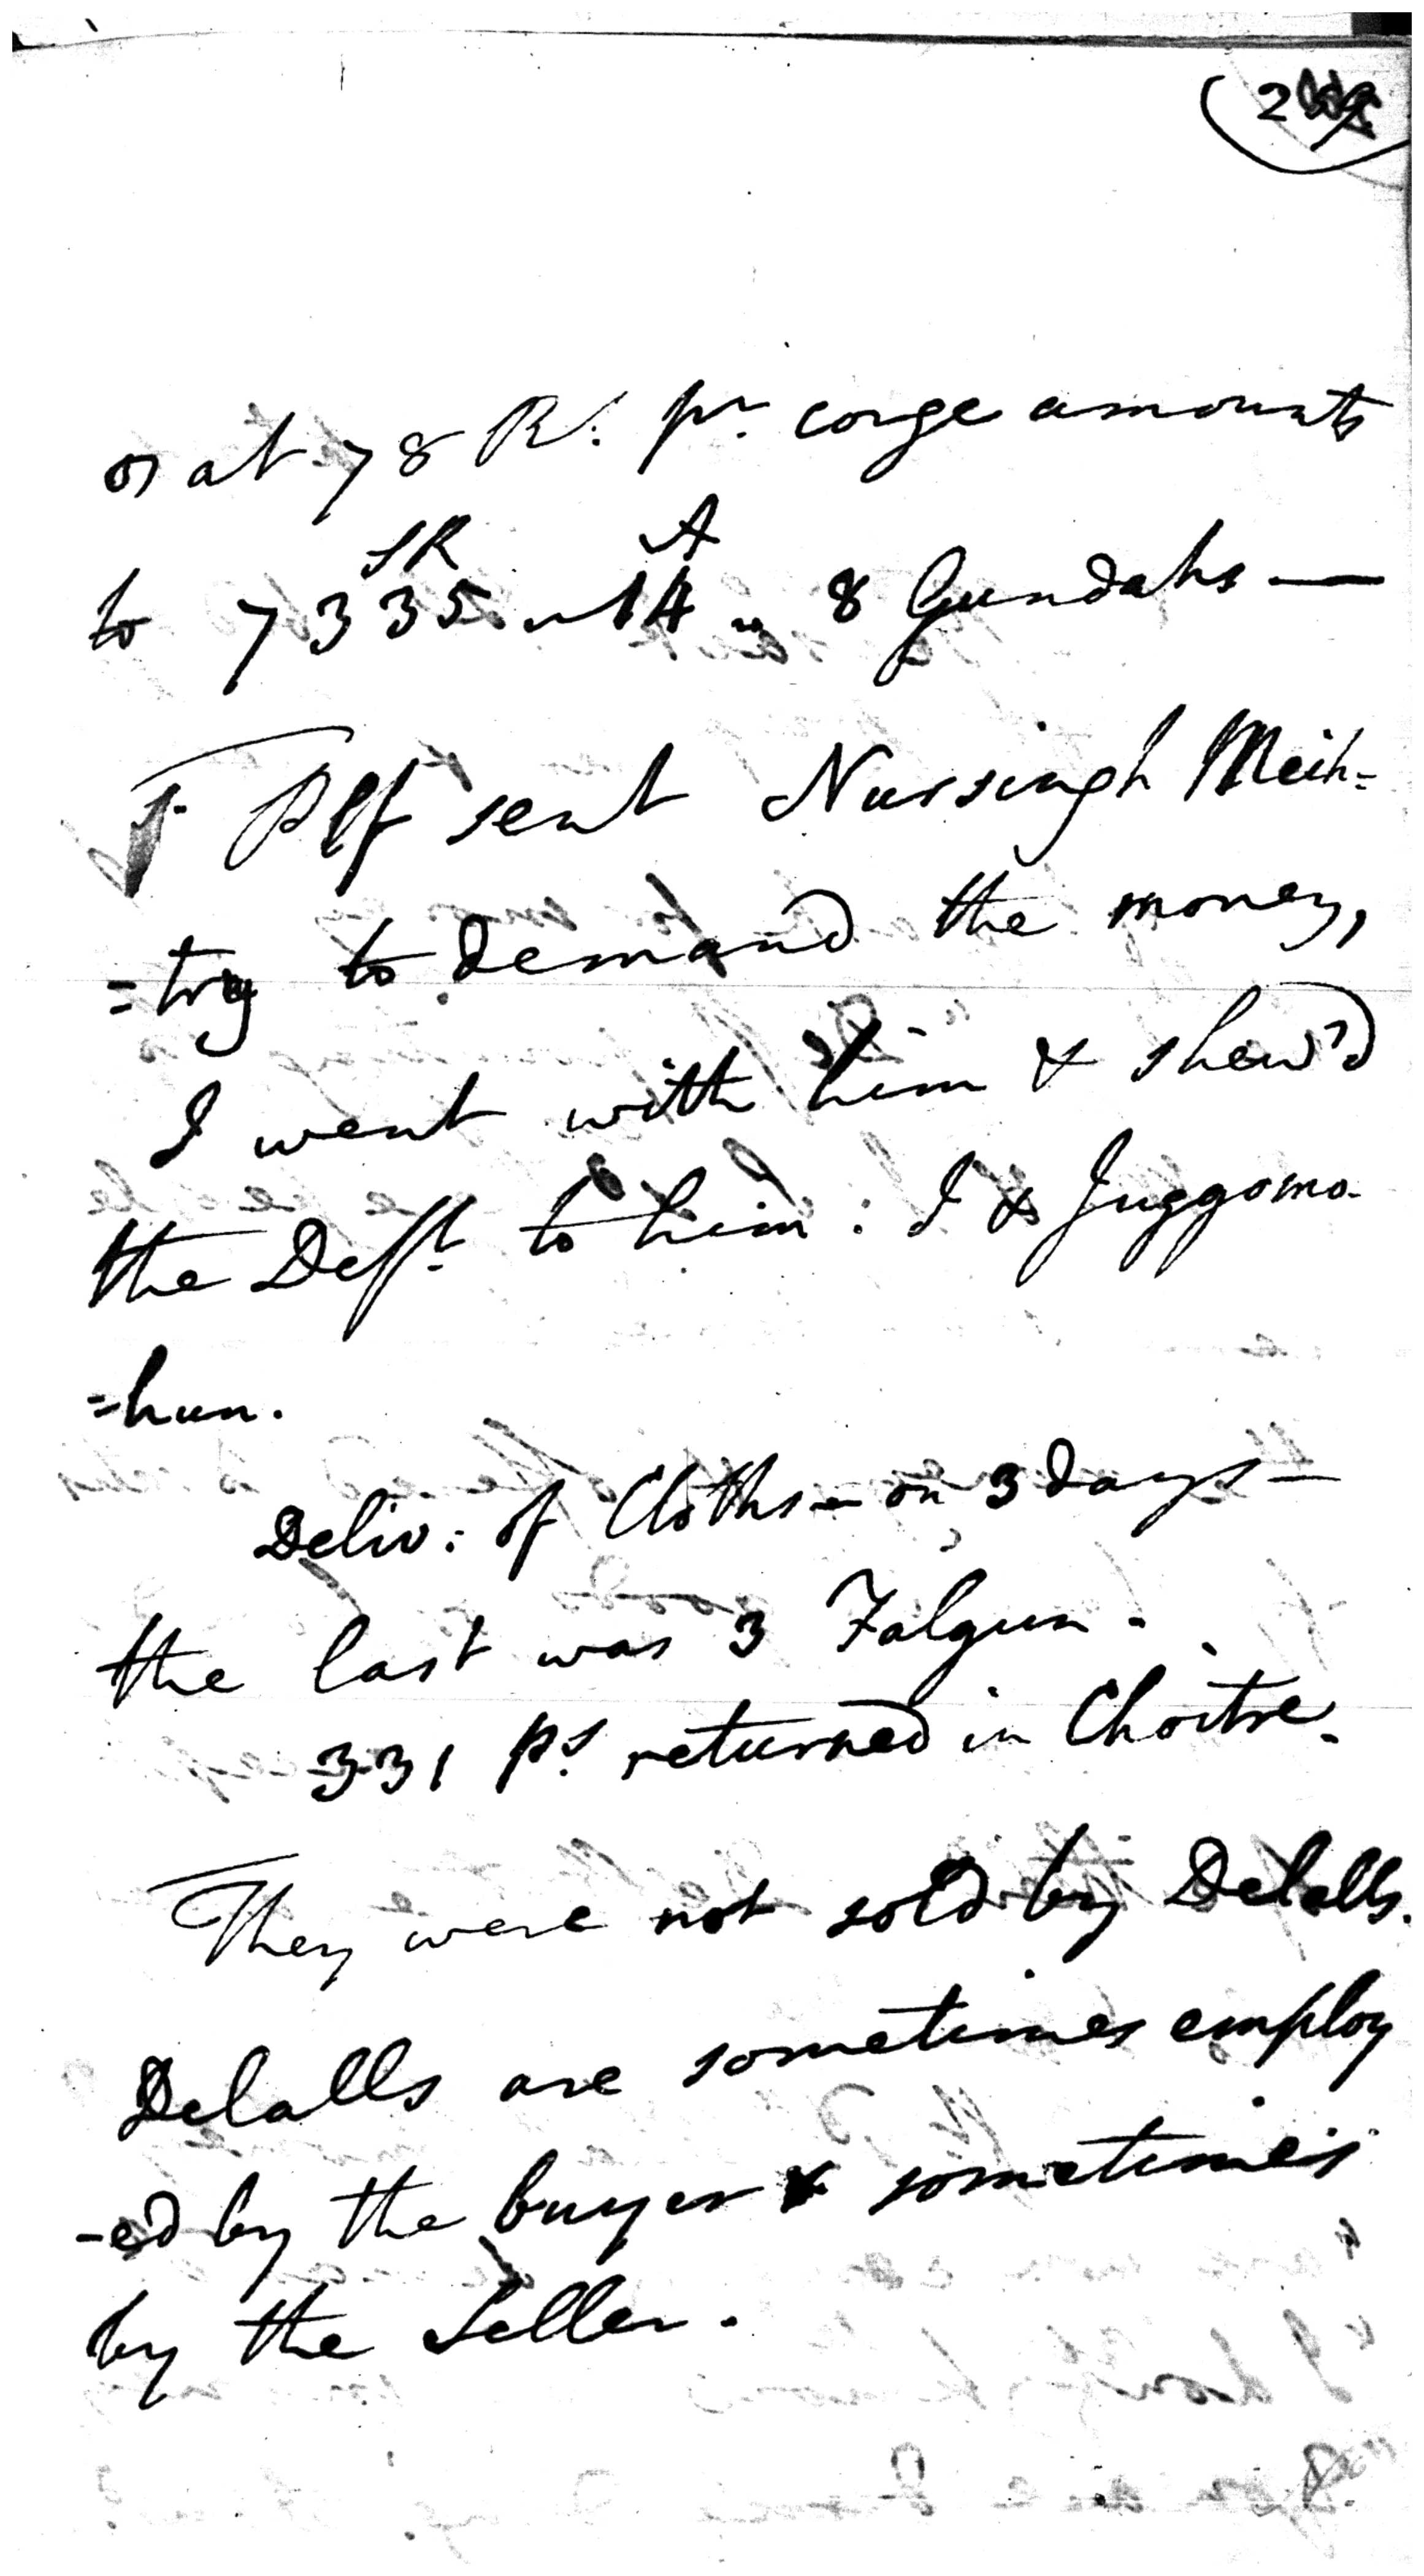 at 78 R.s pr. corge amounts
SR A
to 7335 „ 14 „ 8 Gundahs —
Plf sent Nursingh Meih=
=try to demand the money,
I went with him & shew'd
the Deft. to him : I & Juggomo-
=hun.
Deliv: of Cloths — on 3 days —
the last was 3 Falgun -
331 ps. returned in Choitre.
They were not sold by Delalls.
Delalls are sometimes employ
-ed by the buyer & sometimes
by the Seller.